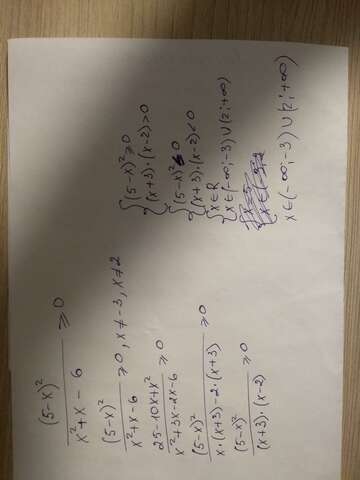 (5-x)²/(x²+x-6) ≥ 0
(5-x)²/(x²+x-6) ≥ 0, x ≠ -3, x ≠ 2
(25-10x+x²)/(x²+3x-2x-6) ≥ 0
(5-x)²/(x·(x+3)-2·(x+3)) ≥ 0
(5-x)²/((x+3)·(x-2)) ≥ 0
{(5-x)² ≥ 0
{(x+3)·(x-2) > 0
{(5-x)² ≤ 0
{(x+3)·(x-2) < 0
{x ∈ R
{x ∈ (-∞; -3) ∪ (2; +∞)
x ∈ (-∞; -3) ∪ (2; +∞)